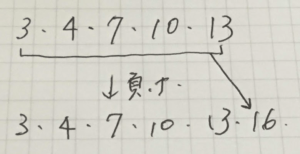 3.4.7.10.13
↓負け.
3.4.7.10.13.16.